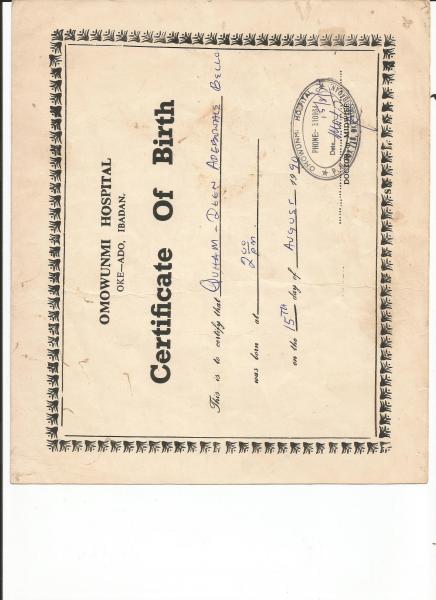 OMOWUNMI HOSPITAL
OKE—ADO, IBADAN.
Certificate Of Birth
This is to certify that QUHAM - DEEN ADEBOWALE BELLO
was born at 2 00 pm.
on the 15TH day of AUGUST 1990
OMOWUNMI HOSPITAL
PHONE-
Date
DOCTOR / MIDWIFE